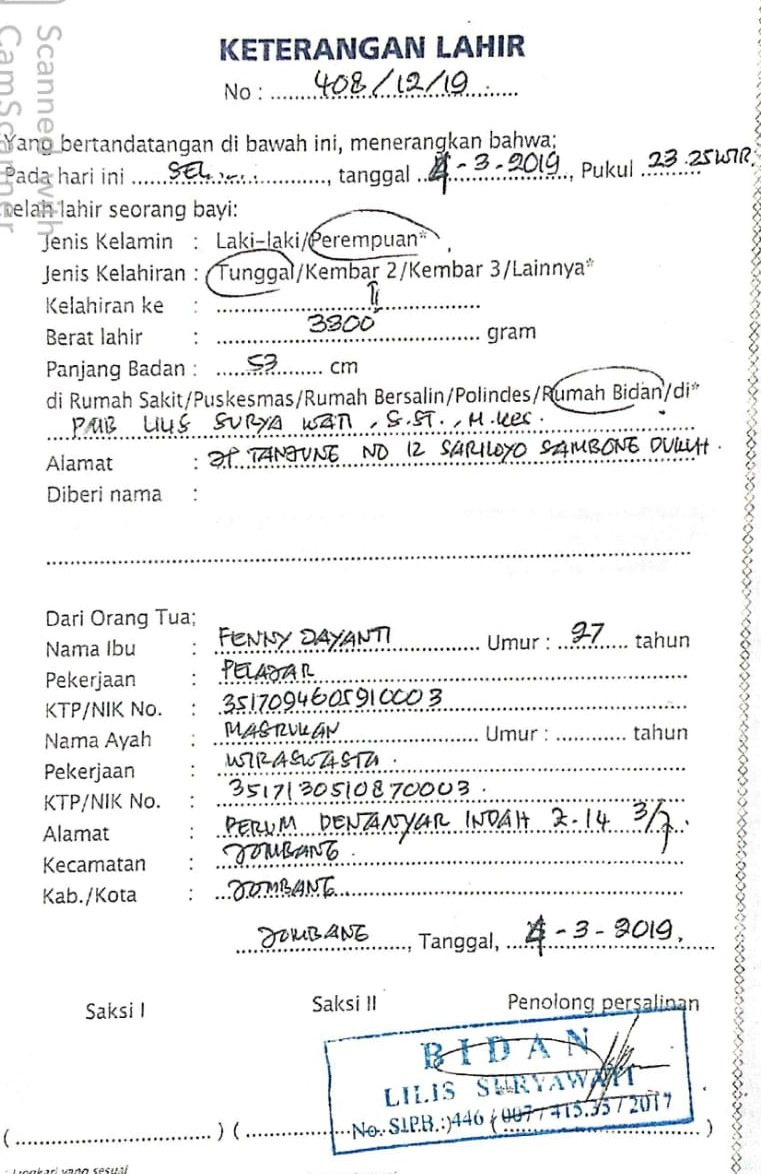 Scanned with
CamScanner
KETERANGAN LAHIR
No : 408/12/19
Yang bertandatangan di bawah ini, menerangkan bahwa;
Pada hari ini SEL....., tanggal 4-3-2019, Pukul 23.25 WIB.
telah lahir seorang bayi:
Jenis Kelamin : Laki-laki/Perempuan*
Jenis Kelahiran : Tunggal/Kembar 2/Kembar 3/Lainnya*
Kelahiran ke : II
Berat lahir : 3300 gram
Panjang Badan : 53 cm
di Rumah Sakit/Puskesmas/Rumah Bersalin/Polindes/Rumah Bidan/di*
PMB LILIS SURYA WATI, S.ST., M.Kes.
Alamat : JL TANJUNG NO 12 SARILOYO SAMBONG DUKUH.
Diberi nama :
Dari Orang Tua;
Nama Ibu : FENNY DAYANTI Umur : 27 tahun
Pekerjaan : PELAJAR
KTP/NIK No. : 3517094605910003
Nama Ayah : MASRUKAN Umur : ............ tahun
Pekerjaan : WIRASWASTA.
KTP/NIK No. : 3517130510870003.
Alamat : PERUM DENANYAR INDAH 2-14 3/7.
Kecamatan : JOMBANG.
Kab./Kota : JOMBANG
JOMBANG, Tanggal, 4-3-2019.
Saksi I Saksi II Penolong persalinan
BIDAN
LILIS SURYAWATI
No. SIPB.:)446 / 007 / 415.35 / 2017
(..............................) (..............................)
Lingkari yang sesuai